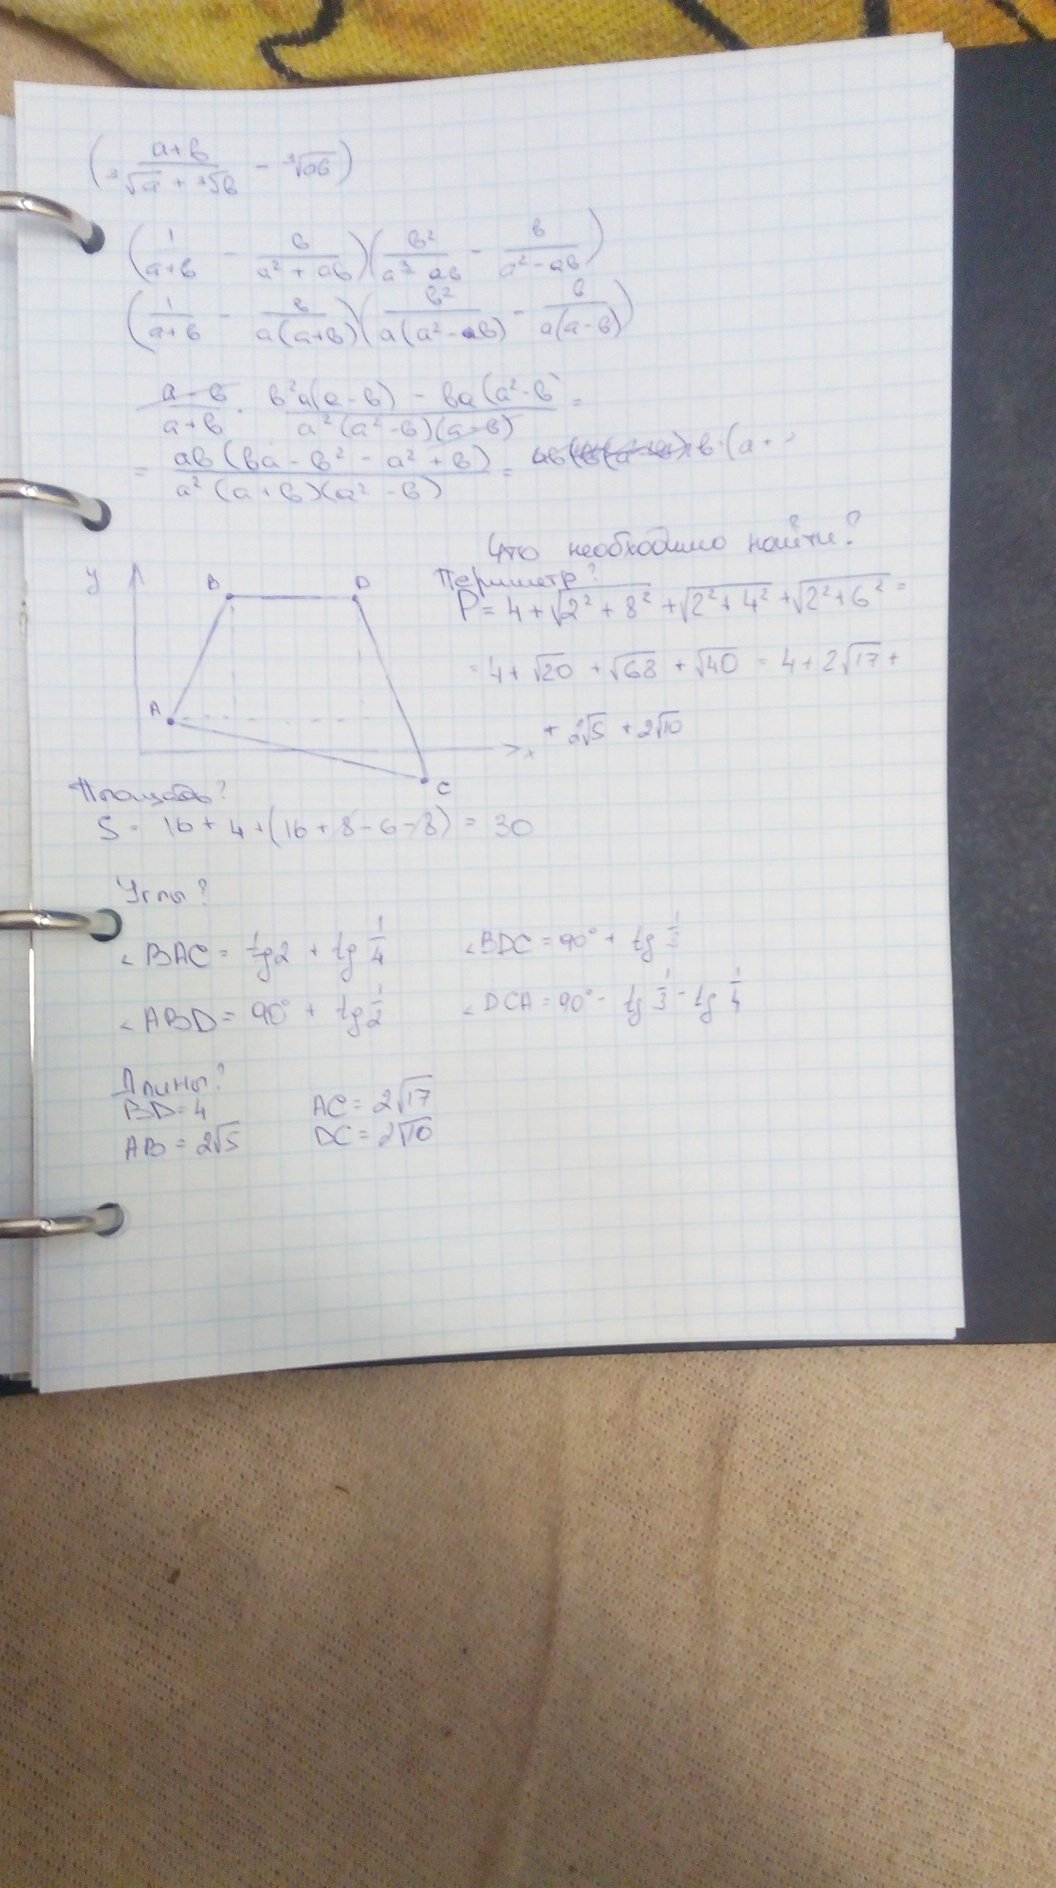 (a+b / ∛a + ∛b − ∛ab)
(1/a+b − b/a²+ab)(b²/a³−ab − b/a²−ab)
(1/a+b − b/a(a+b))(b²/a(a²−b) − b/a(a−b))
a−b/a+b · b²a(a−b) − ba(a²−b/a²(a²−b)(a−b) =
= ab(ba−b²−a²+b)/a²(a+b)(a²−b) =
Что необходимо найти?
Периметр?
P = 4+√2²+8² +√2²+4² +√2²+6² =
= 4+√20 +√68 +√40 = 4+2√17+
+ 2√5 +2√10
y
B
D
A
x
C
Площадь?
S = 16 + 4 +(16+8−6−8) = 30
Углы?
∠BAC = tg2 + tg 1/4
∠BDC = 90° + tg 1/3
∠ABD = 90° + tg 1/2
∠DCA = 90° − tg 1/3 − tg 1/4
Длины?
BD = 4
AC = 2√17
AB = 2√5
DC = 2√10